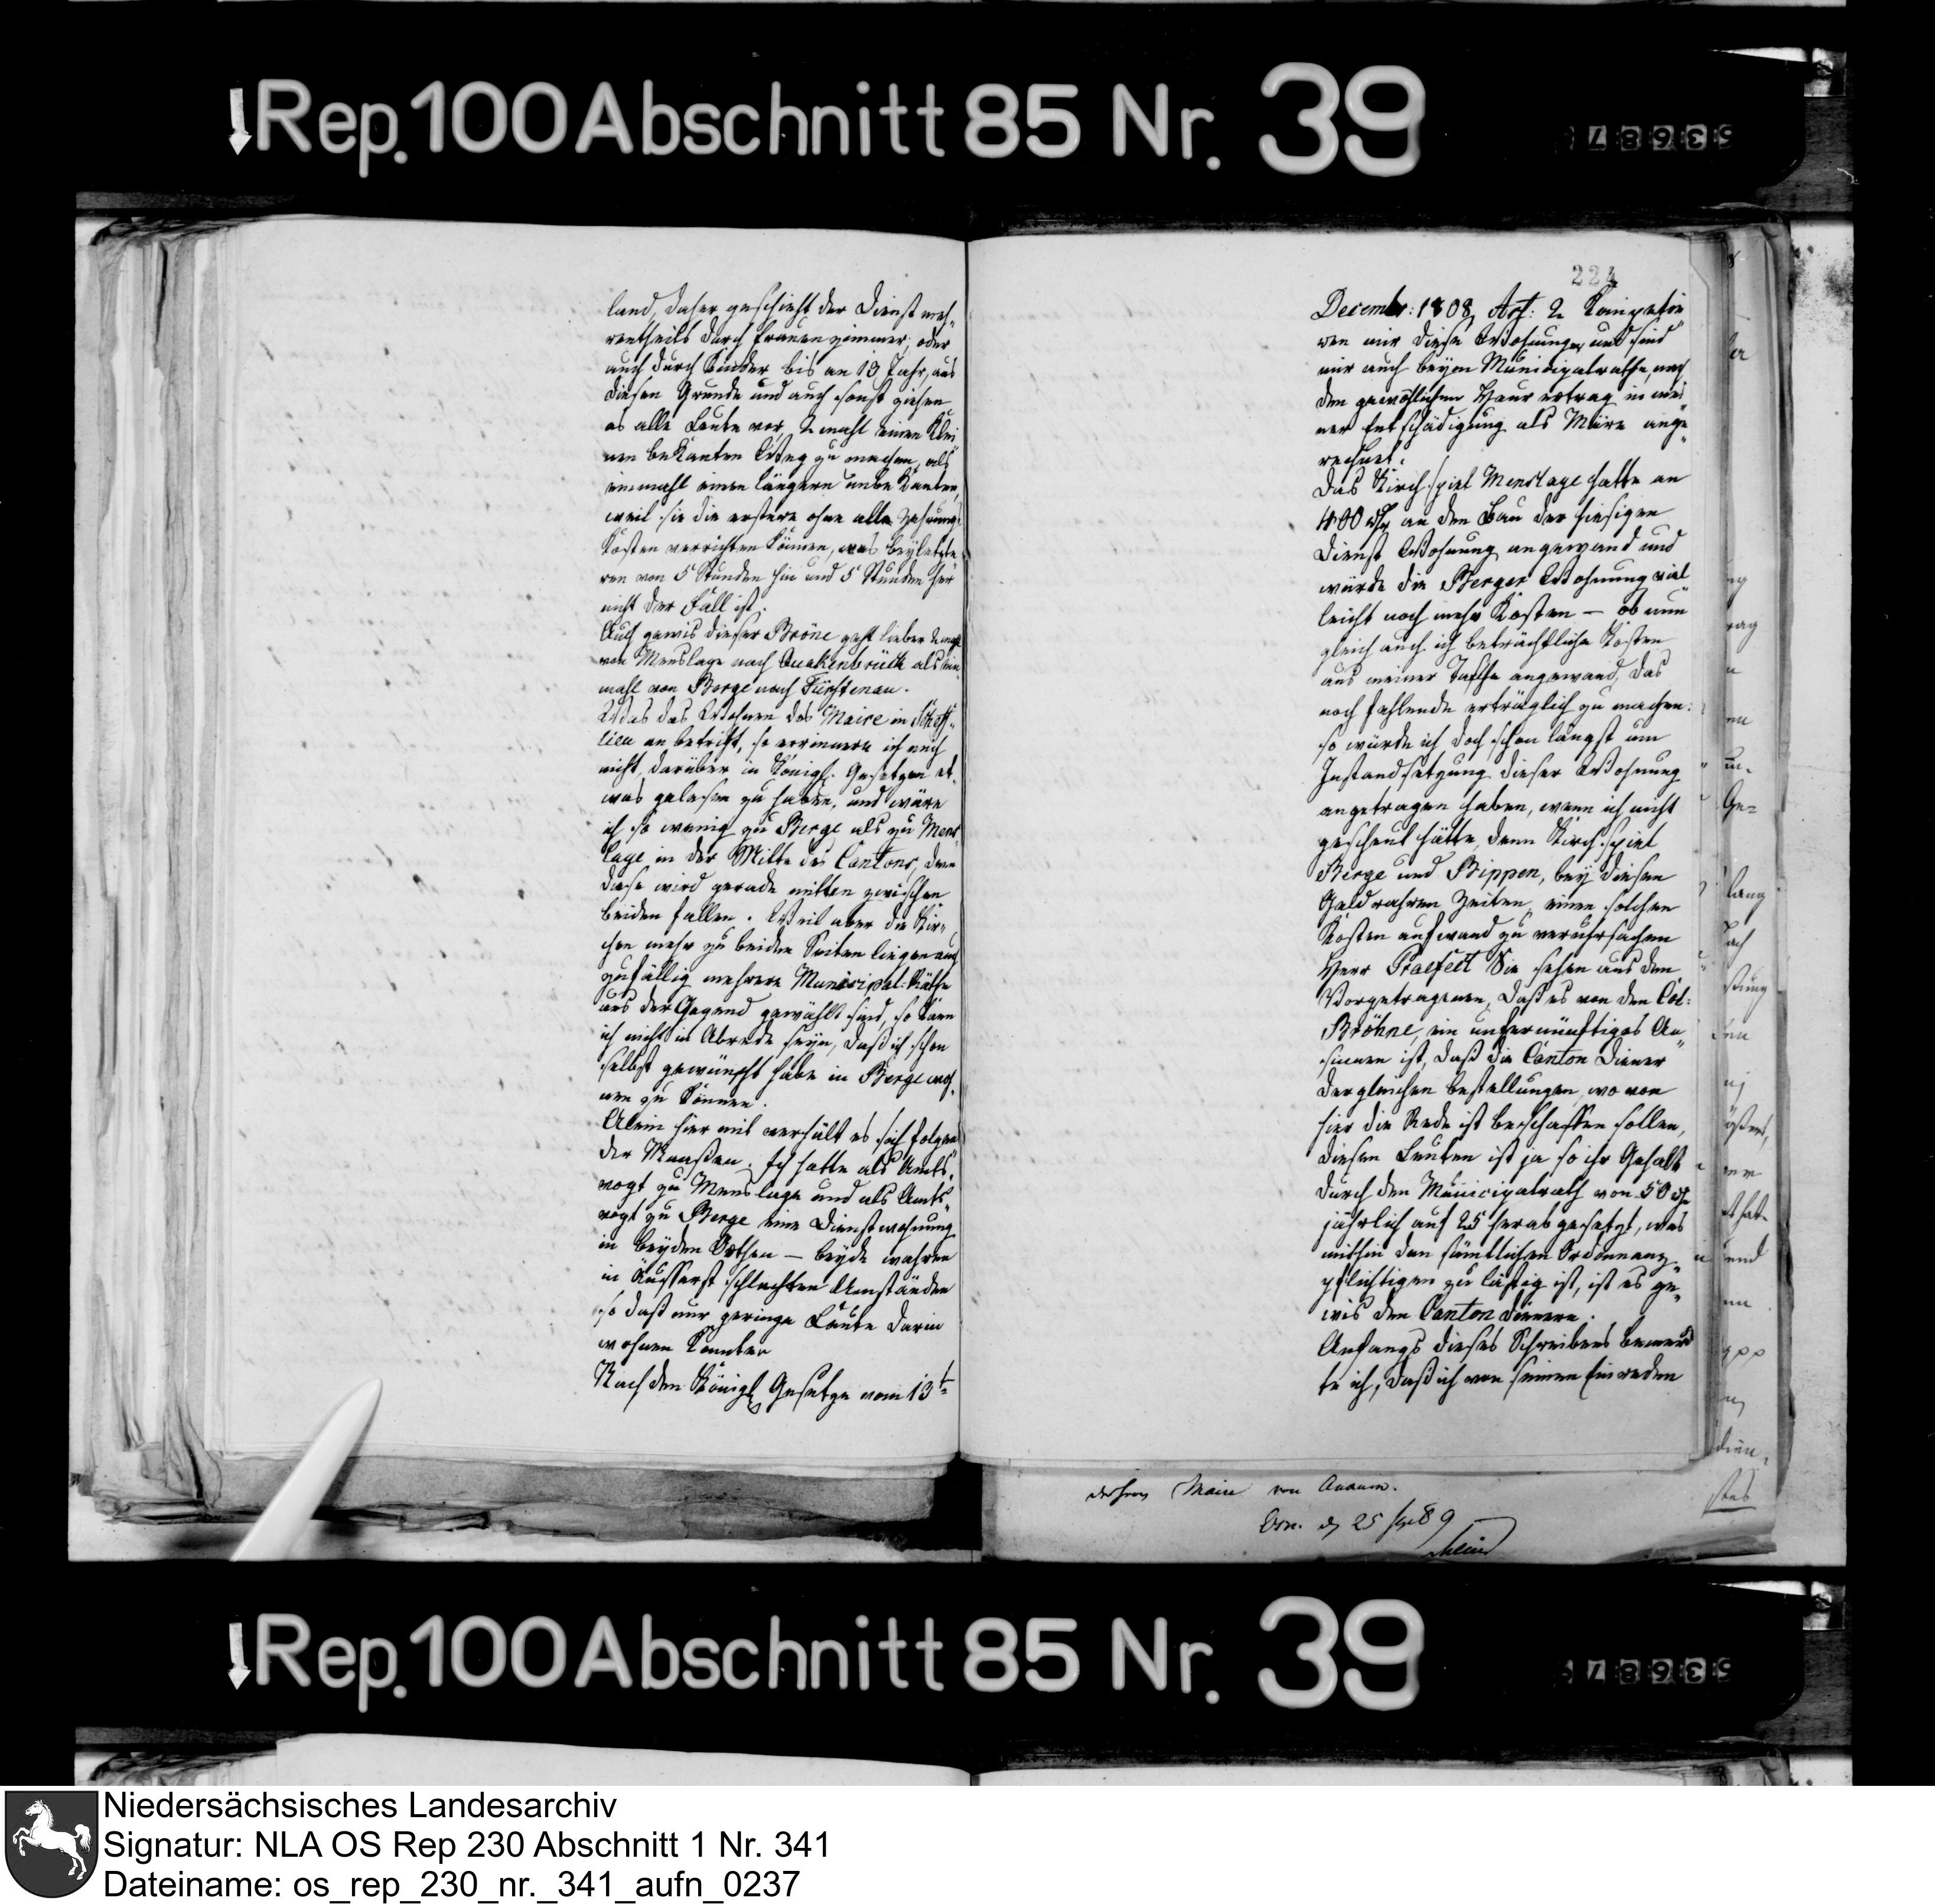 Rep. 100 Abschnitt 85 Nr. 39
land, daher geschieht der Dienst meh„
rentheils durch Frauenzimmer, oder
auch durch Kinder bis an 13 Jahr, aus
diesen Grunde und auch sonst ziehen
es alle Leute vor, 2 mahl einen klei„
nen bekanten Weg zu machen, als
einmahl einen längern unbekanten,
weil sie die erstere ohne alle Zehrungs„
Kosten verrichten können, was bey letzte„
ren von 5 Stunden hin und 5 Stunden her
nicht der Fall ist.
Auch gewis dieser Bröne geht lieber 2 mahl
von Menslage nach Quakenbrück als ein„
mahl von Berge nach Fürstenau.
Was das Wohnen des Maire in
anbetrift, so errinnere ich mich
nicht, darüber in Königl. Gesetzen et„
was gelesen zu haben, und wäre
ich so wenig zu Berge als zu Mens„
lage in der Mitte des Cantons, denn
diese wird gerade mitten zwischen
beiden fallen. Weil aber die Kir„
chen mehr zu beiden Seiten liegen auch
zufällig mehrere Municipal-Räthe
aus der Gegend gewählt sind, so kann
ich nicht in Abrede seyn, daß ich schon
selbst gewünscht habe in Berge woh„
nen zu können.
Alein hier mit verhält es sich folgen„
der Maaßen. Ich hatte als Amts„
vogt zu Menslage und als Amts„
vogt zu Berge eine Dienstwohnung
in beyden Orthen – beyde wahren
in Äusserst schlechten Umständen
so daß nur geringe Leute darin
wohnen konnten
Nach den Königl. Gesetze vom 13t
224
Decembr: 1808, Art: 2 Competir
ren mir diese Wohnungen und sind
mir auch beym Municipalrathe, nach
den gewöhlichen Heur ertrag in mei„
ner Entschädigung als Märe ange„
rechnet.
Das Kirchspiel Menslage hatte an
400 rthlr an den Bau der hiesigen
Dienst Wohnung angewand und
würde die Berger Wohnung viel„
leicht noch mehr Kosten – ob nun
gleich auch ich beträchtliche Kosten
aus meiner Tasche angewand, das
noch fehlende erträglich zu machen:
so würde ich doch schon längst um
Instandsetzung dieser Wohnung
angetragen haben, wenn ich nicht
gescheut hätte, denn Kirchspiel
Berge und Bippen, bey diesen
Geld rahren Zeiten, einen solchen
Kosten aufwand zu verursachen
Herr Praefect Sie sehen aus den
Vorgetragenen, daß es von den Col:
Bröhne, ein unfernünftiges An„
sinnen ist, daß die Canton Diener
dergleichen bestellungen, wo von
hier die Rede ist beschaffen sollen,
diesen Leuten ist ja so ihr Gehalt
durch den Municipalrath von 50 rt
jährlich auf 25 herabgesetzt, was
mithin den sämtlichen Ordonnanz„
pflichtigen zu lästig ist, ist es ge„
wis den Canton dienern.
Anfangs dieses Schreibens bemerk
te ich, daß ich von seinen Einreden
Maire von Ankum.
d 25 9
Rep. 100 Abschnitt 85 Nr. 39
Niedersächsisches Landesarchiv
Signatur: NLA OS Rep 230 Abschnitt 1 Nr. 341
Dateiname: os_rep_230_nr._341_aufn_0237